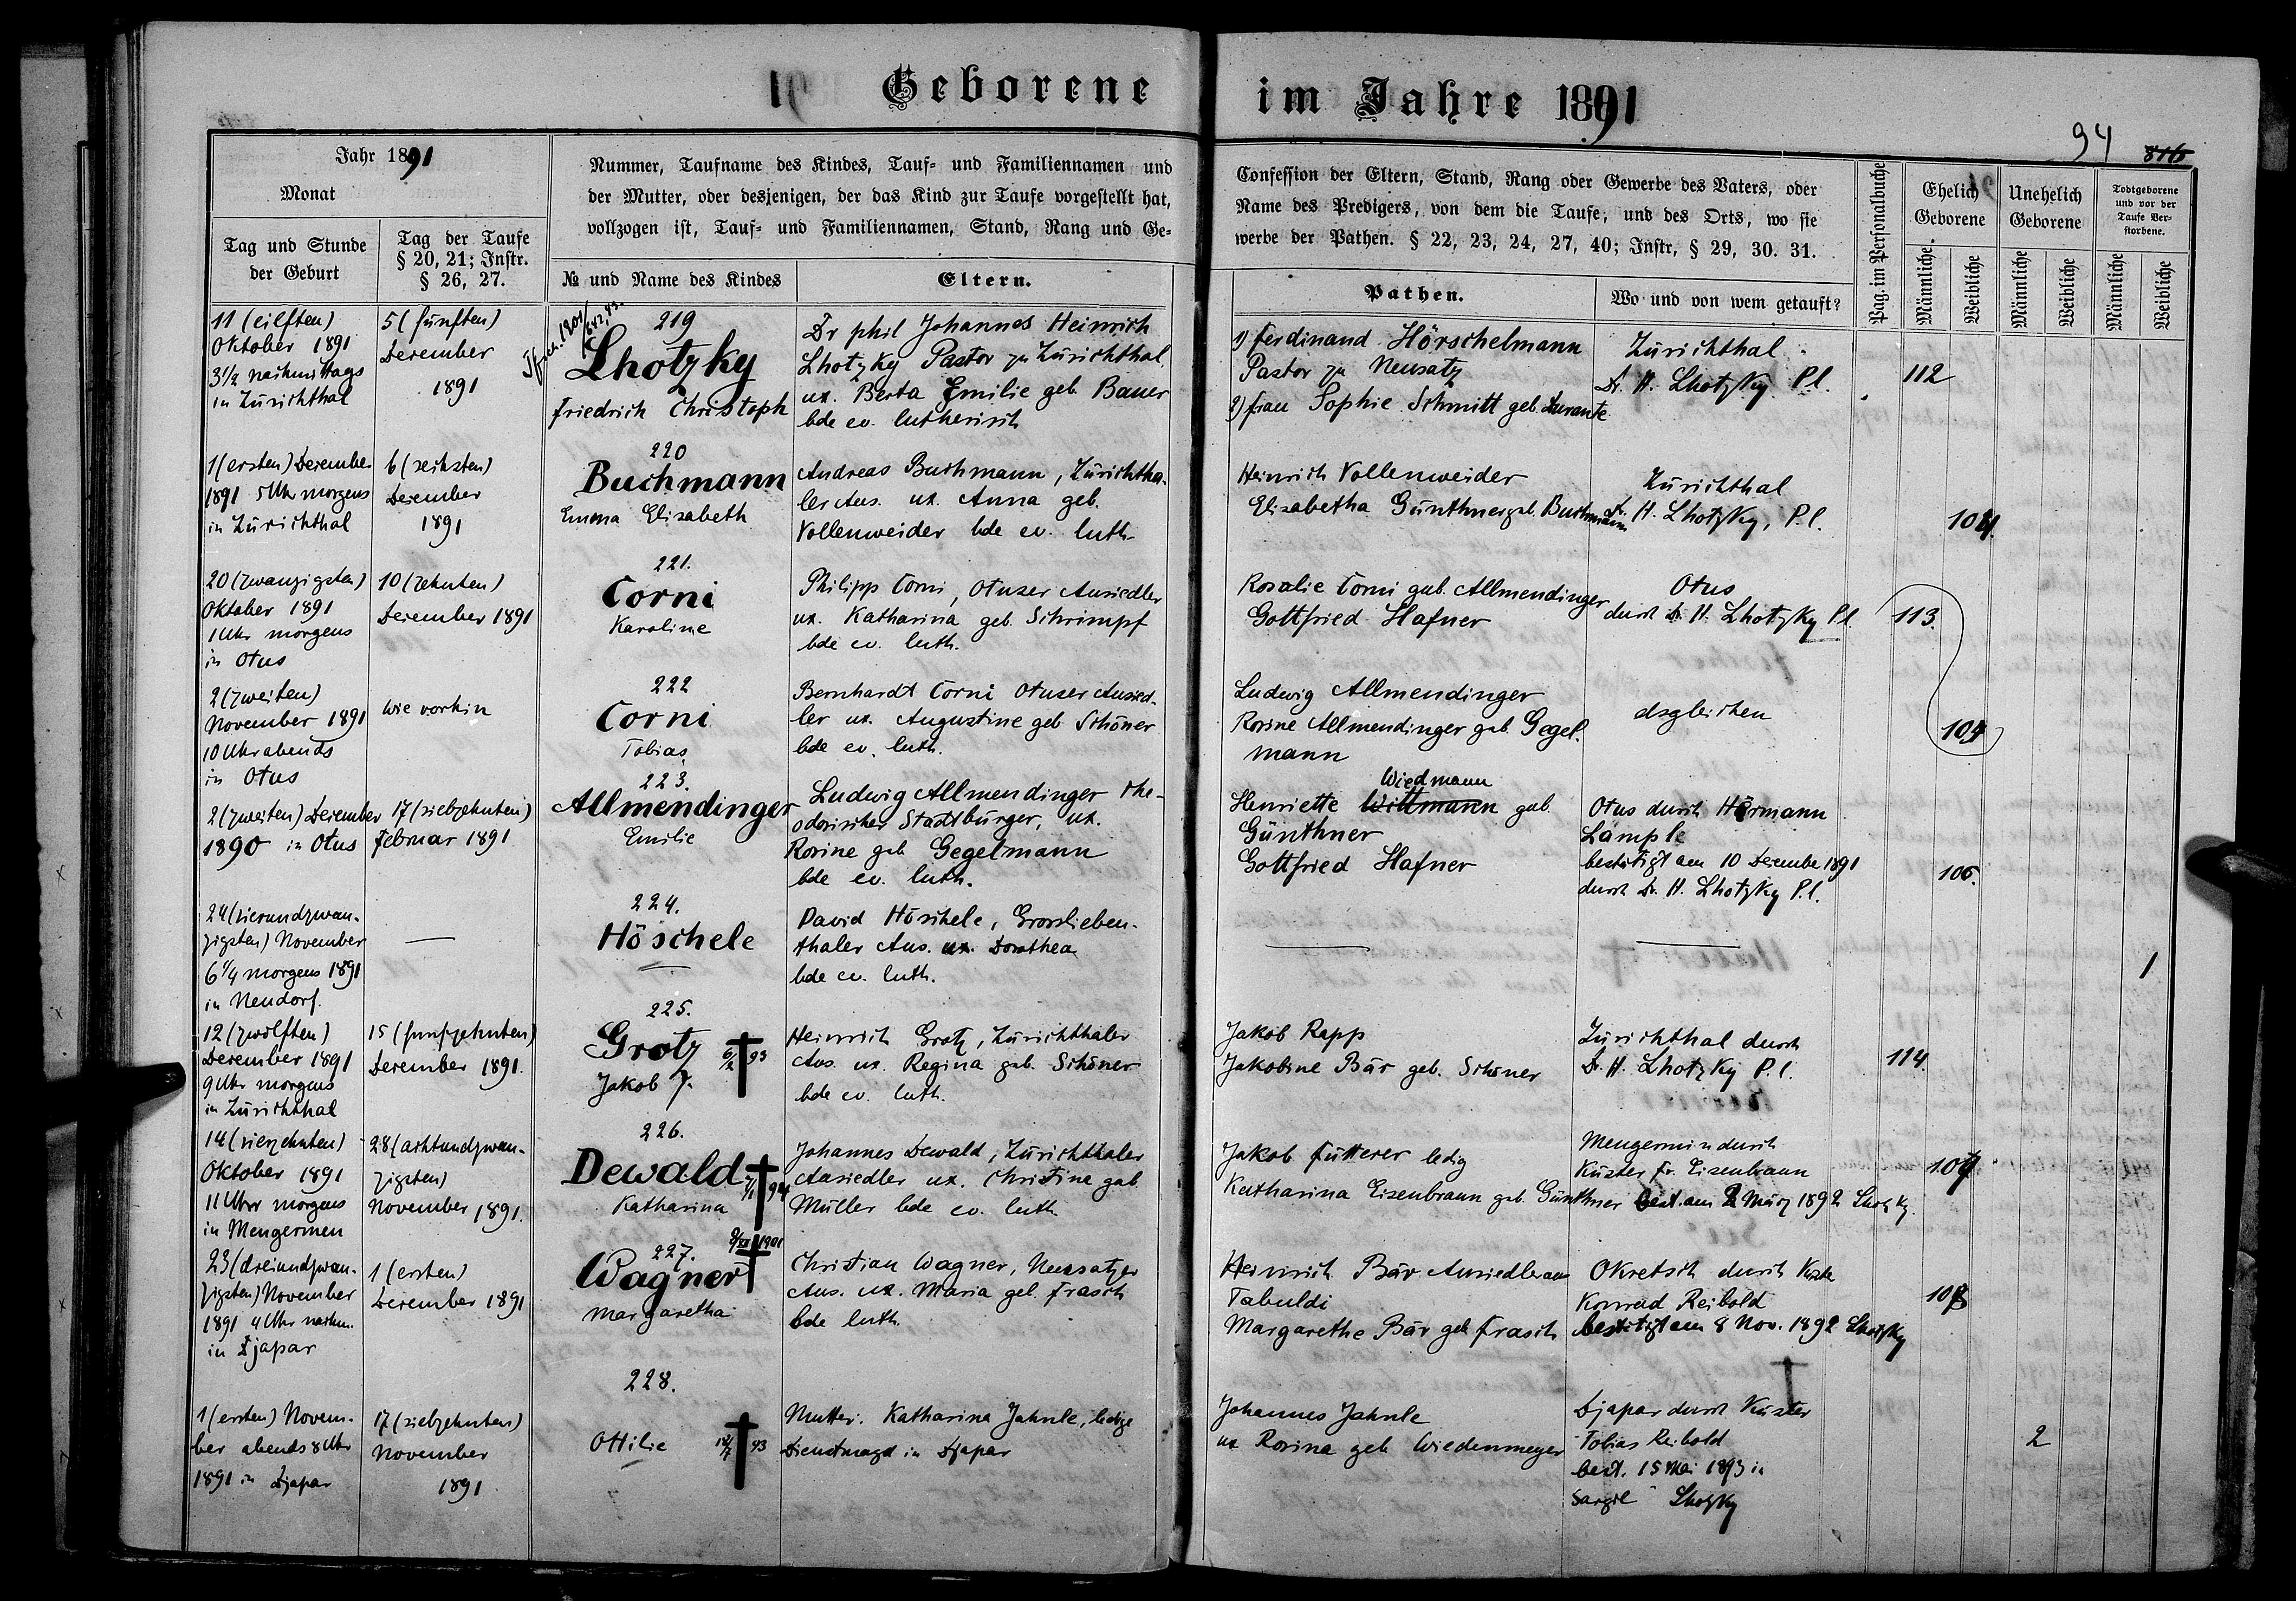 Geborene im Jahre 1891
94
816
Jahr 1891
Monat
Tag und Stunde
der Geburt
Tag der Taufe
§ 20, 21; Instr.
§ 26, 27.
Nummer, Taufname des Kindes, Tauf- und Familiennamen und
der Mutter, oder desjenigen, der das Kind zur Taufe vorgestellt hat,
vollzogen ist, Tauf- und Familiennamen, Stand, Rang und Ge-
№ und Name des Kindes
Eltern.
Confession der Eltern, Stand, Rang oder Gewerbe des Vaters, oder
Name des Predigers, von dem die Taufe, und des Orts, wo sie
werbe der Pathen. § 22, 23, 24, 27, 40; Instr, § 29, 30. 31.
Pathen.
Wo und von wem getauft?
Pag. im Personalbuche
Ehelich
Geborene
Unehelich
Geborene
Todtgeborene
und vor der
Taufe Ver-
storbene.
Männliche
Weibliche
Männliche
Weibliche
Männliche
Weibliche
11 (eilften)
Oktober 1891
3 1/2 nachmittags
in Zürichthal
5 (fünften)
Dezember
1891
219
Lhotzky
Friedrich Christoph
Dr phil Johannes Heinrich
Lhotzky Pastor zu Zürichthal
ux. Berta Emilie geb. Bauer
bde ev. lutherisch
1) Ferdinand Hörschelmann
Pastor zu Neusatz
2) Frau Sophie Schmitt geb. Durante
Zürichthal
Dr. H. Lhotzky P.l.
112
1 (ersten) Dezember
1891 5 Uhr morgens
in Zürichthal
6 (sechsten)
Dezember
1891
220
Buchmann
Emma Elisabeth
Andreas Buchmann, Zürichtha-
ler Ans. ux. Anna geb.
Vollenweider bde ev. luth.
Heinrich Vollenweider
Elisabetha Günthner geb. Buchmann
Zürichthal
Dr. H. Lhotzky, P.l.
104.
20 (zwanzigsten)
Oktober 1891
1 Uhr morgens
in Otus
10 (zehnten)
Dezember 1891
221.
Corni
Karoline
Philipp Corni, Otuser Ansiedler
ux. Katharina geb. Schrimpf
bde ev. luth.
Rosalie Corni geb. Allmendinger
Gottfried Hafner
Otus
durch Dr. H. Lhotzky P.l.
113.
2 (zweiten)
November 1891
10 Uhr abends
in Otus
wie vorhin
222
Corni
Tobias
Bernhardt Corni Otuser Ansied-
ler ux. Augustine geb Schöner
bde ev. luth.
Ludwig Allmendinger
Rosine Allmendinger geb. Gegel-
mann
dsgleichen
104
2 (zweiten) Dezember
1890 in Otus
17 (siebzehnten)
Februar 1891
223.
Allmendinger
Emilie
Ludwig Allmendinger the-
odosischer Stadtbürger, ux.
Rosine geb Gegelmann
bde ev. luth.
Wiedmann
Henriette Wittmann geb.
Günthner
Gottfried Hafner
Otus durch Hermann
Lämple
bestätigt am 10 Dezember 1891
durch Dr. H. Lhotzky P.l.
106.
24 (vierundzwan-
zigsten) November
6 1/4 morgens 1891
in Neudorf.
224.
Höschele
David Höschele, Grosslieben-
thaler Ans. ux. Dorothea
bde ev. luth.
1
12 (zwölften)
Dezember 1891
9 Uhr morgens
in Zürichthal
15 (fünfzehnten)
Dezember 1891.
225.
Grotz
93
Jakob J.
Heinrich Grotz, Zürichthaler
Ans. ux. Regina geb. Schöner
bde ev. luth.
Jakob Rapp
Jakobine Bär geb. Schöner
Zürichthal durch
Dr. H. Lhotzky P.l.
114.
14 (vierzehnten)
Oktober 1891
11 Uhr morgens
in Mengermen
28 (achtundzwan-
zigsten)
November 1891.
226.
Dewald
94
Katharina
Johannes Dewald, Zürichthaler
Ansiedler ux. Christine geb
Müller bde ev. luth
Jakob Futterer ledig
Katharina Eisenbraun geb. Günthner
Mengermin durch
Küster Fr. Eisenbraun
best. am 2 März 1892 Lhotzky.
107
23 (dreiundzwan-
zigsten) November
1891 4 Uhr nachm.
in Djapar
1 (ersten)
Dezember 1891
227.
1901
Wagner
Margaretha
Christian Wagner, Neusatzer
Ans. ux. Maria geb. Frasch
bde luth.
Heinrich Bär Ansiedler aus
Tabuldi
Margarethe Bär geb Frasch
Okretsch durch Küster
Konrad Reibold
bestätigt am 8 Nov. 1892 Lhotzky
108
1 (ersten) Novem-
ber abends 8 Uhr
1891 in Djapar
17 (siebzehnten)
November
1891
228.
Ottilie
93
Mutter. Katharina Jahnle, ledige
Dienstmagd in Djapar
Johannes Jahnle
ux Rosina geb Wiedenmeyer
Djapar durch Küster
Tobias Reibold
best. 15 Mai 1893 in
Sargil Lhotzky
2